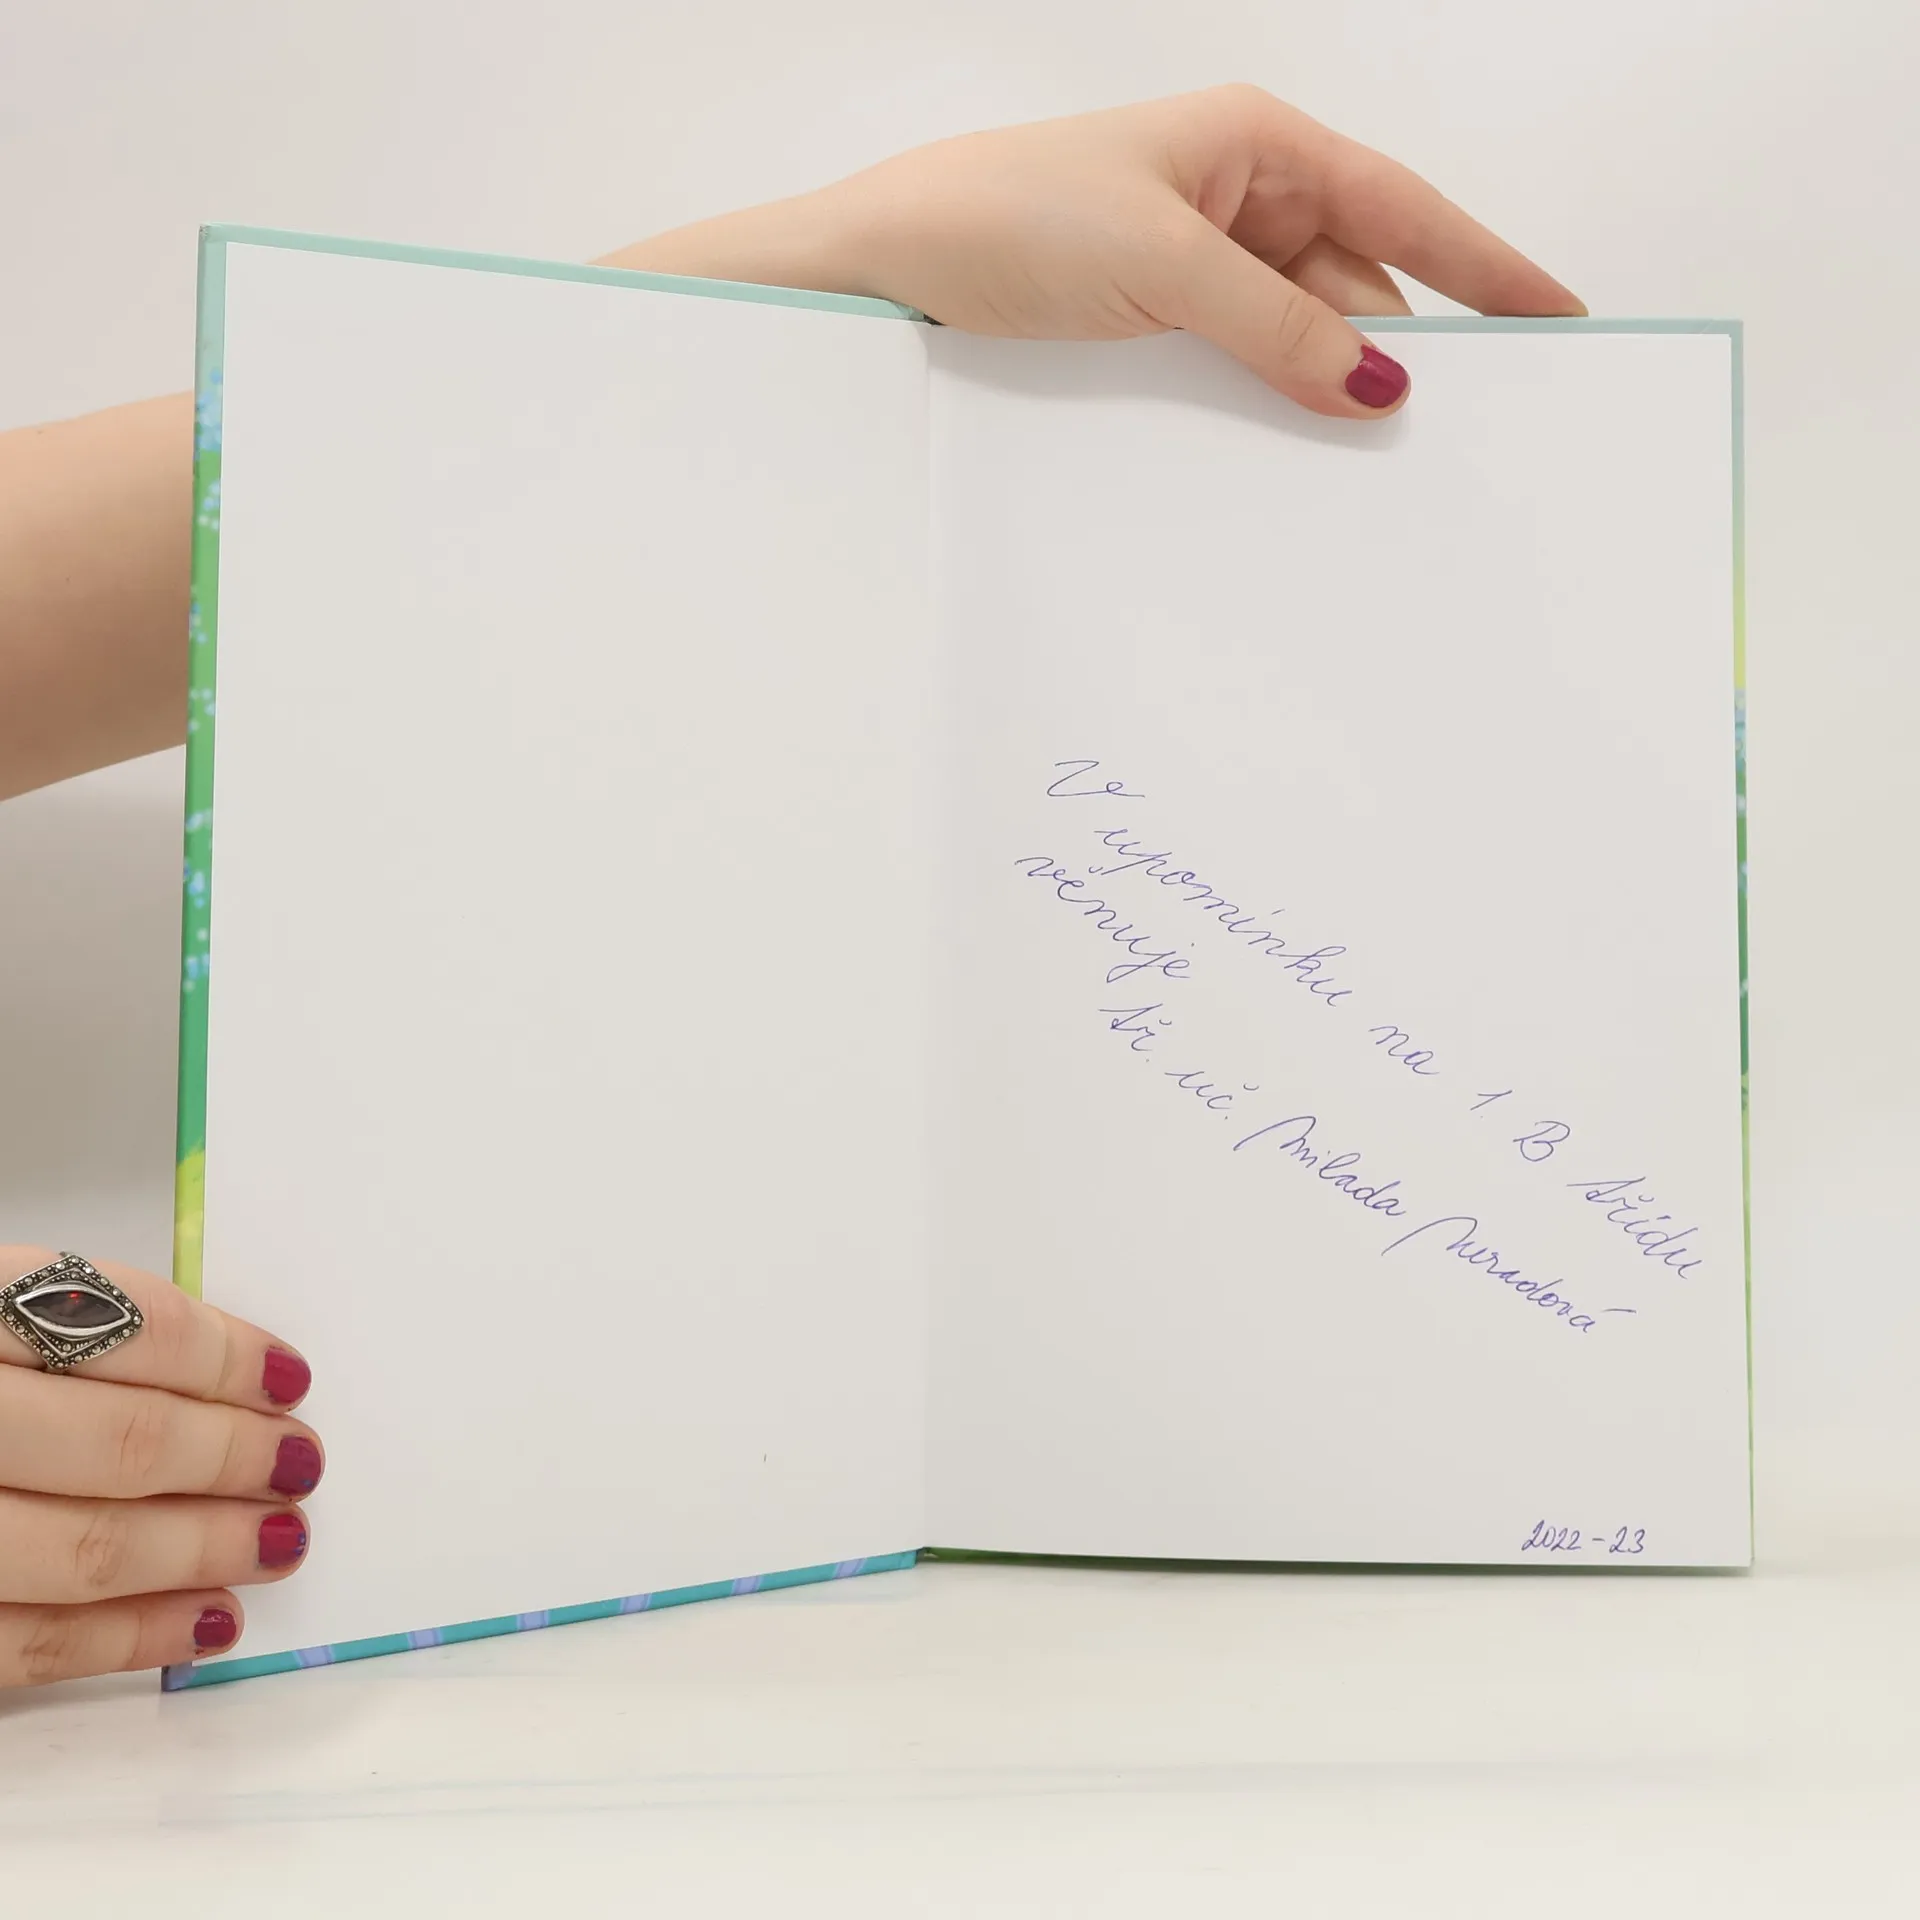 Ve
upomínku na 1. B třídu
věnuje
tř. uč. Milada
2022-23